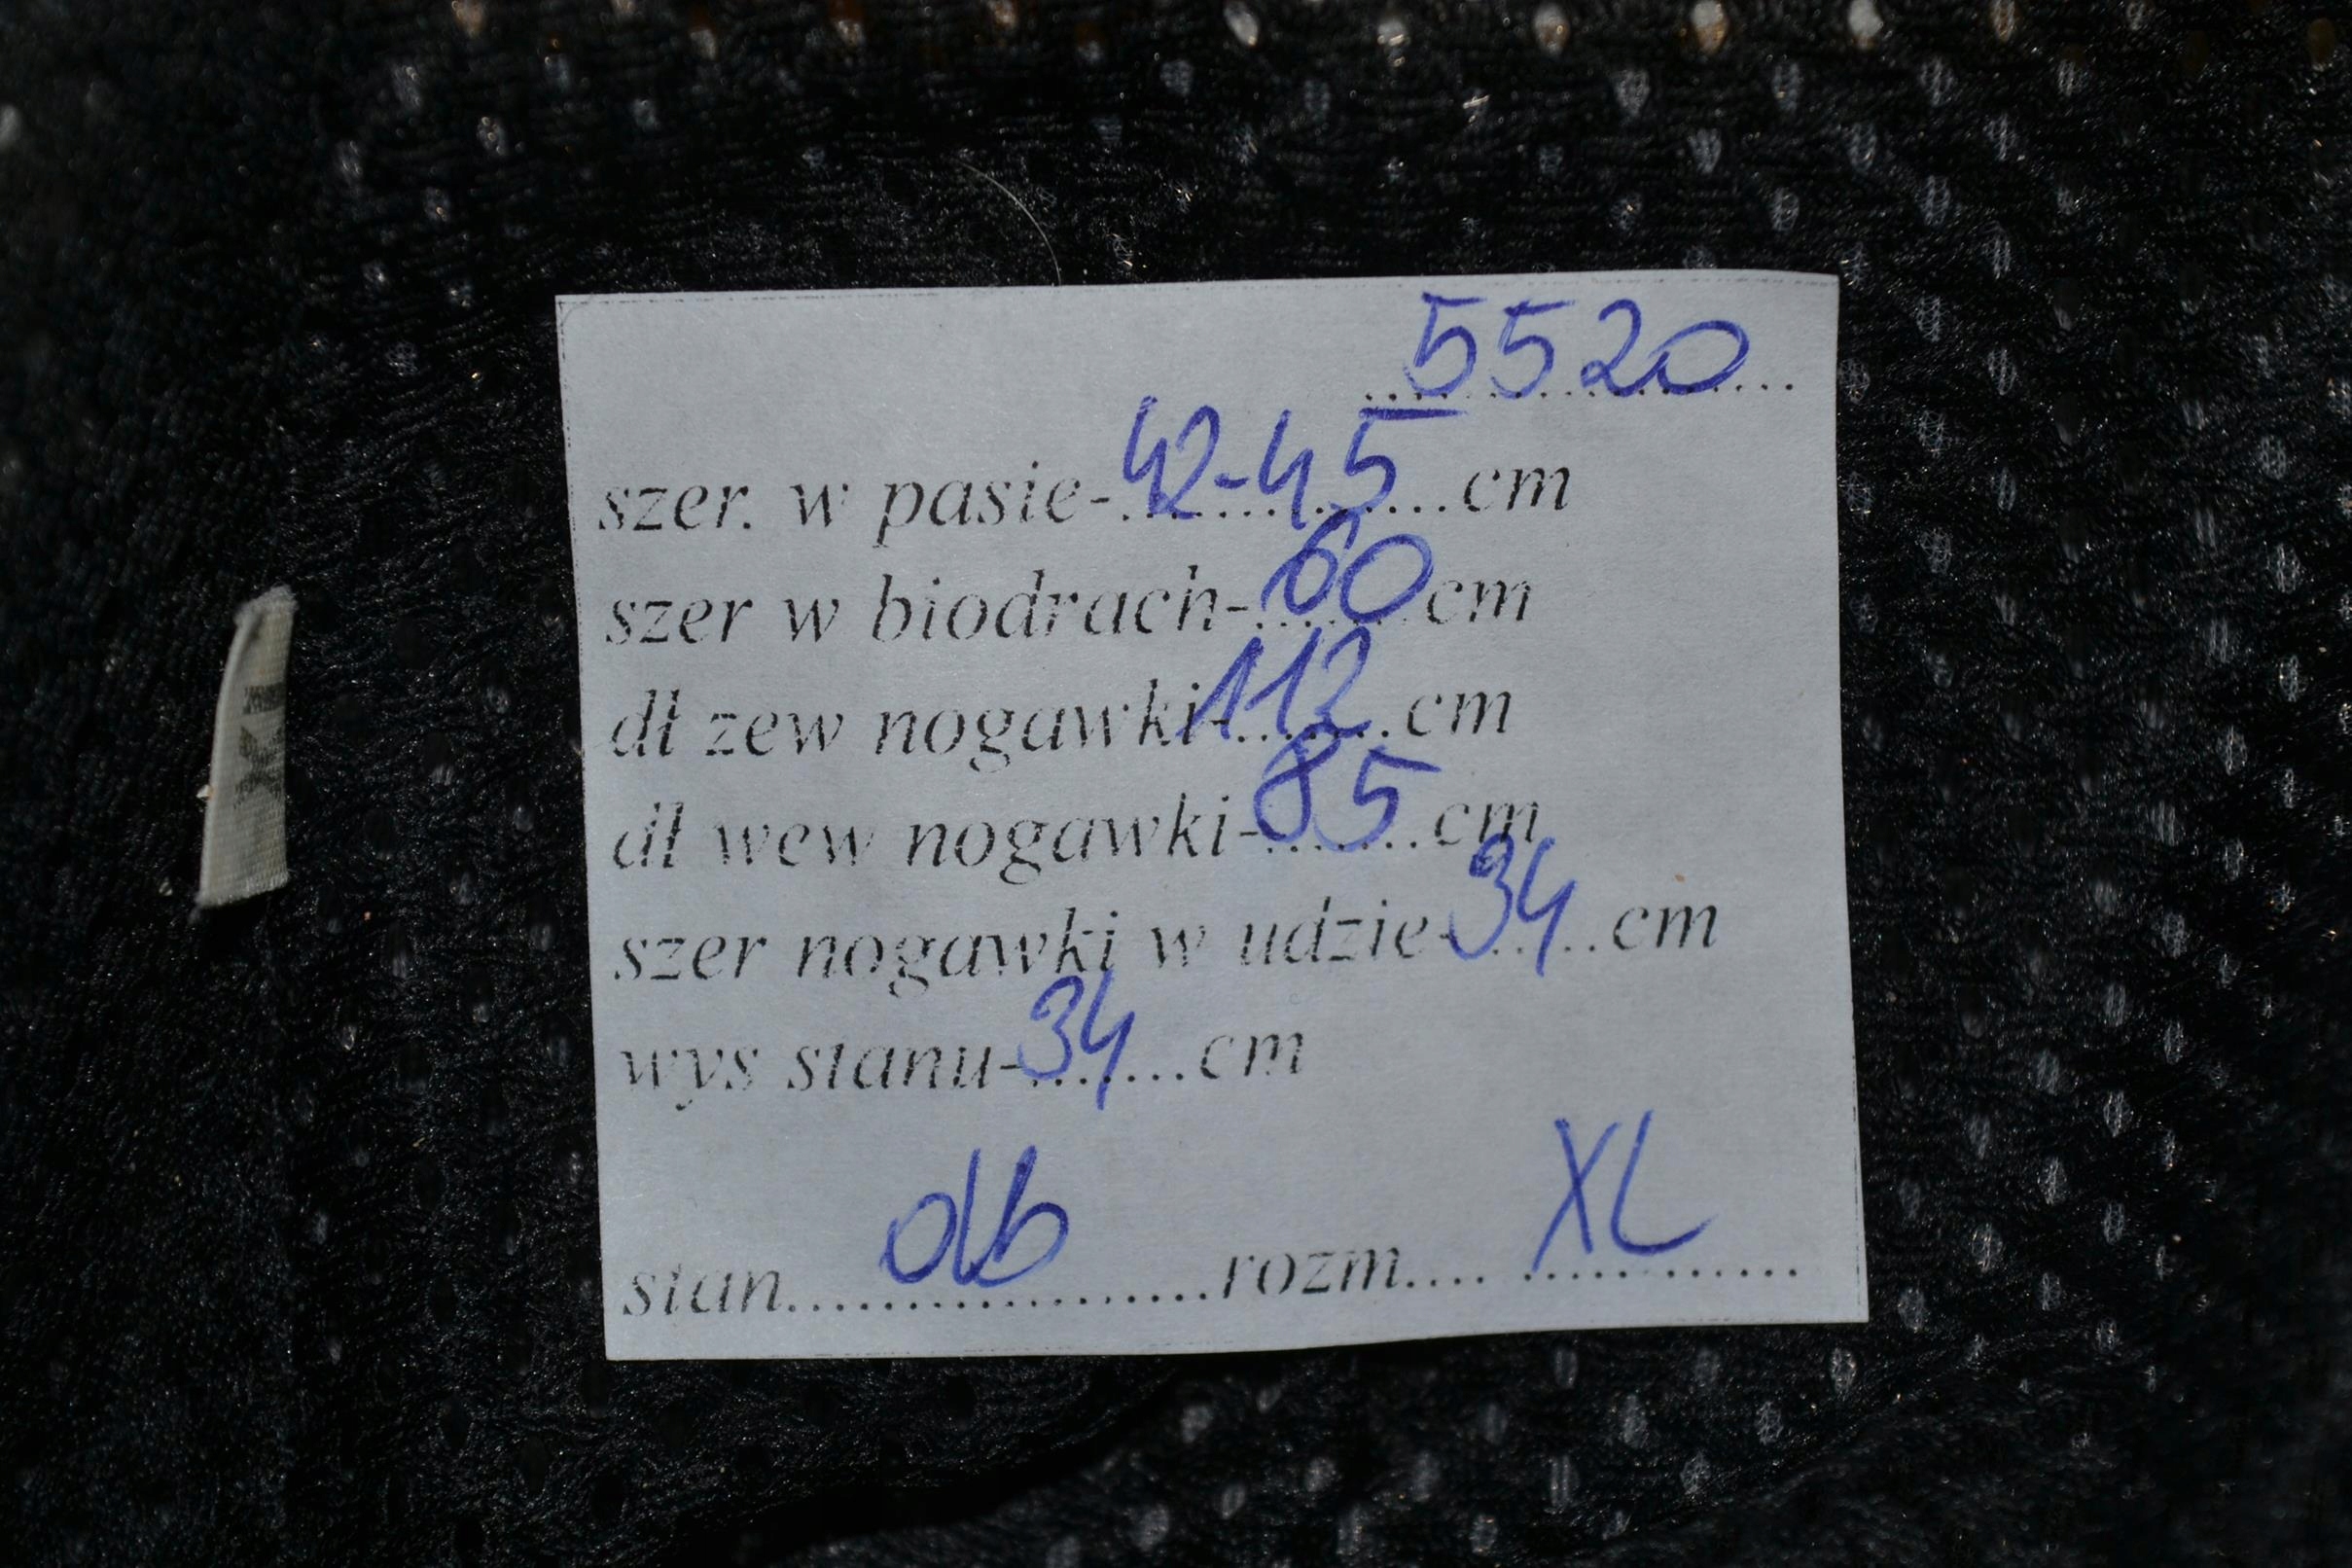 5520
szer. w pasie-42-45cm
szer w biodrach-60cm
dł zew nogawki-112cm
dł wew nogawki-85cm
szer nogawki w udzie-34cm
wys stanu-34cm
stan....db....rozm....XL
XL